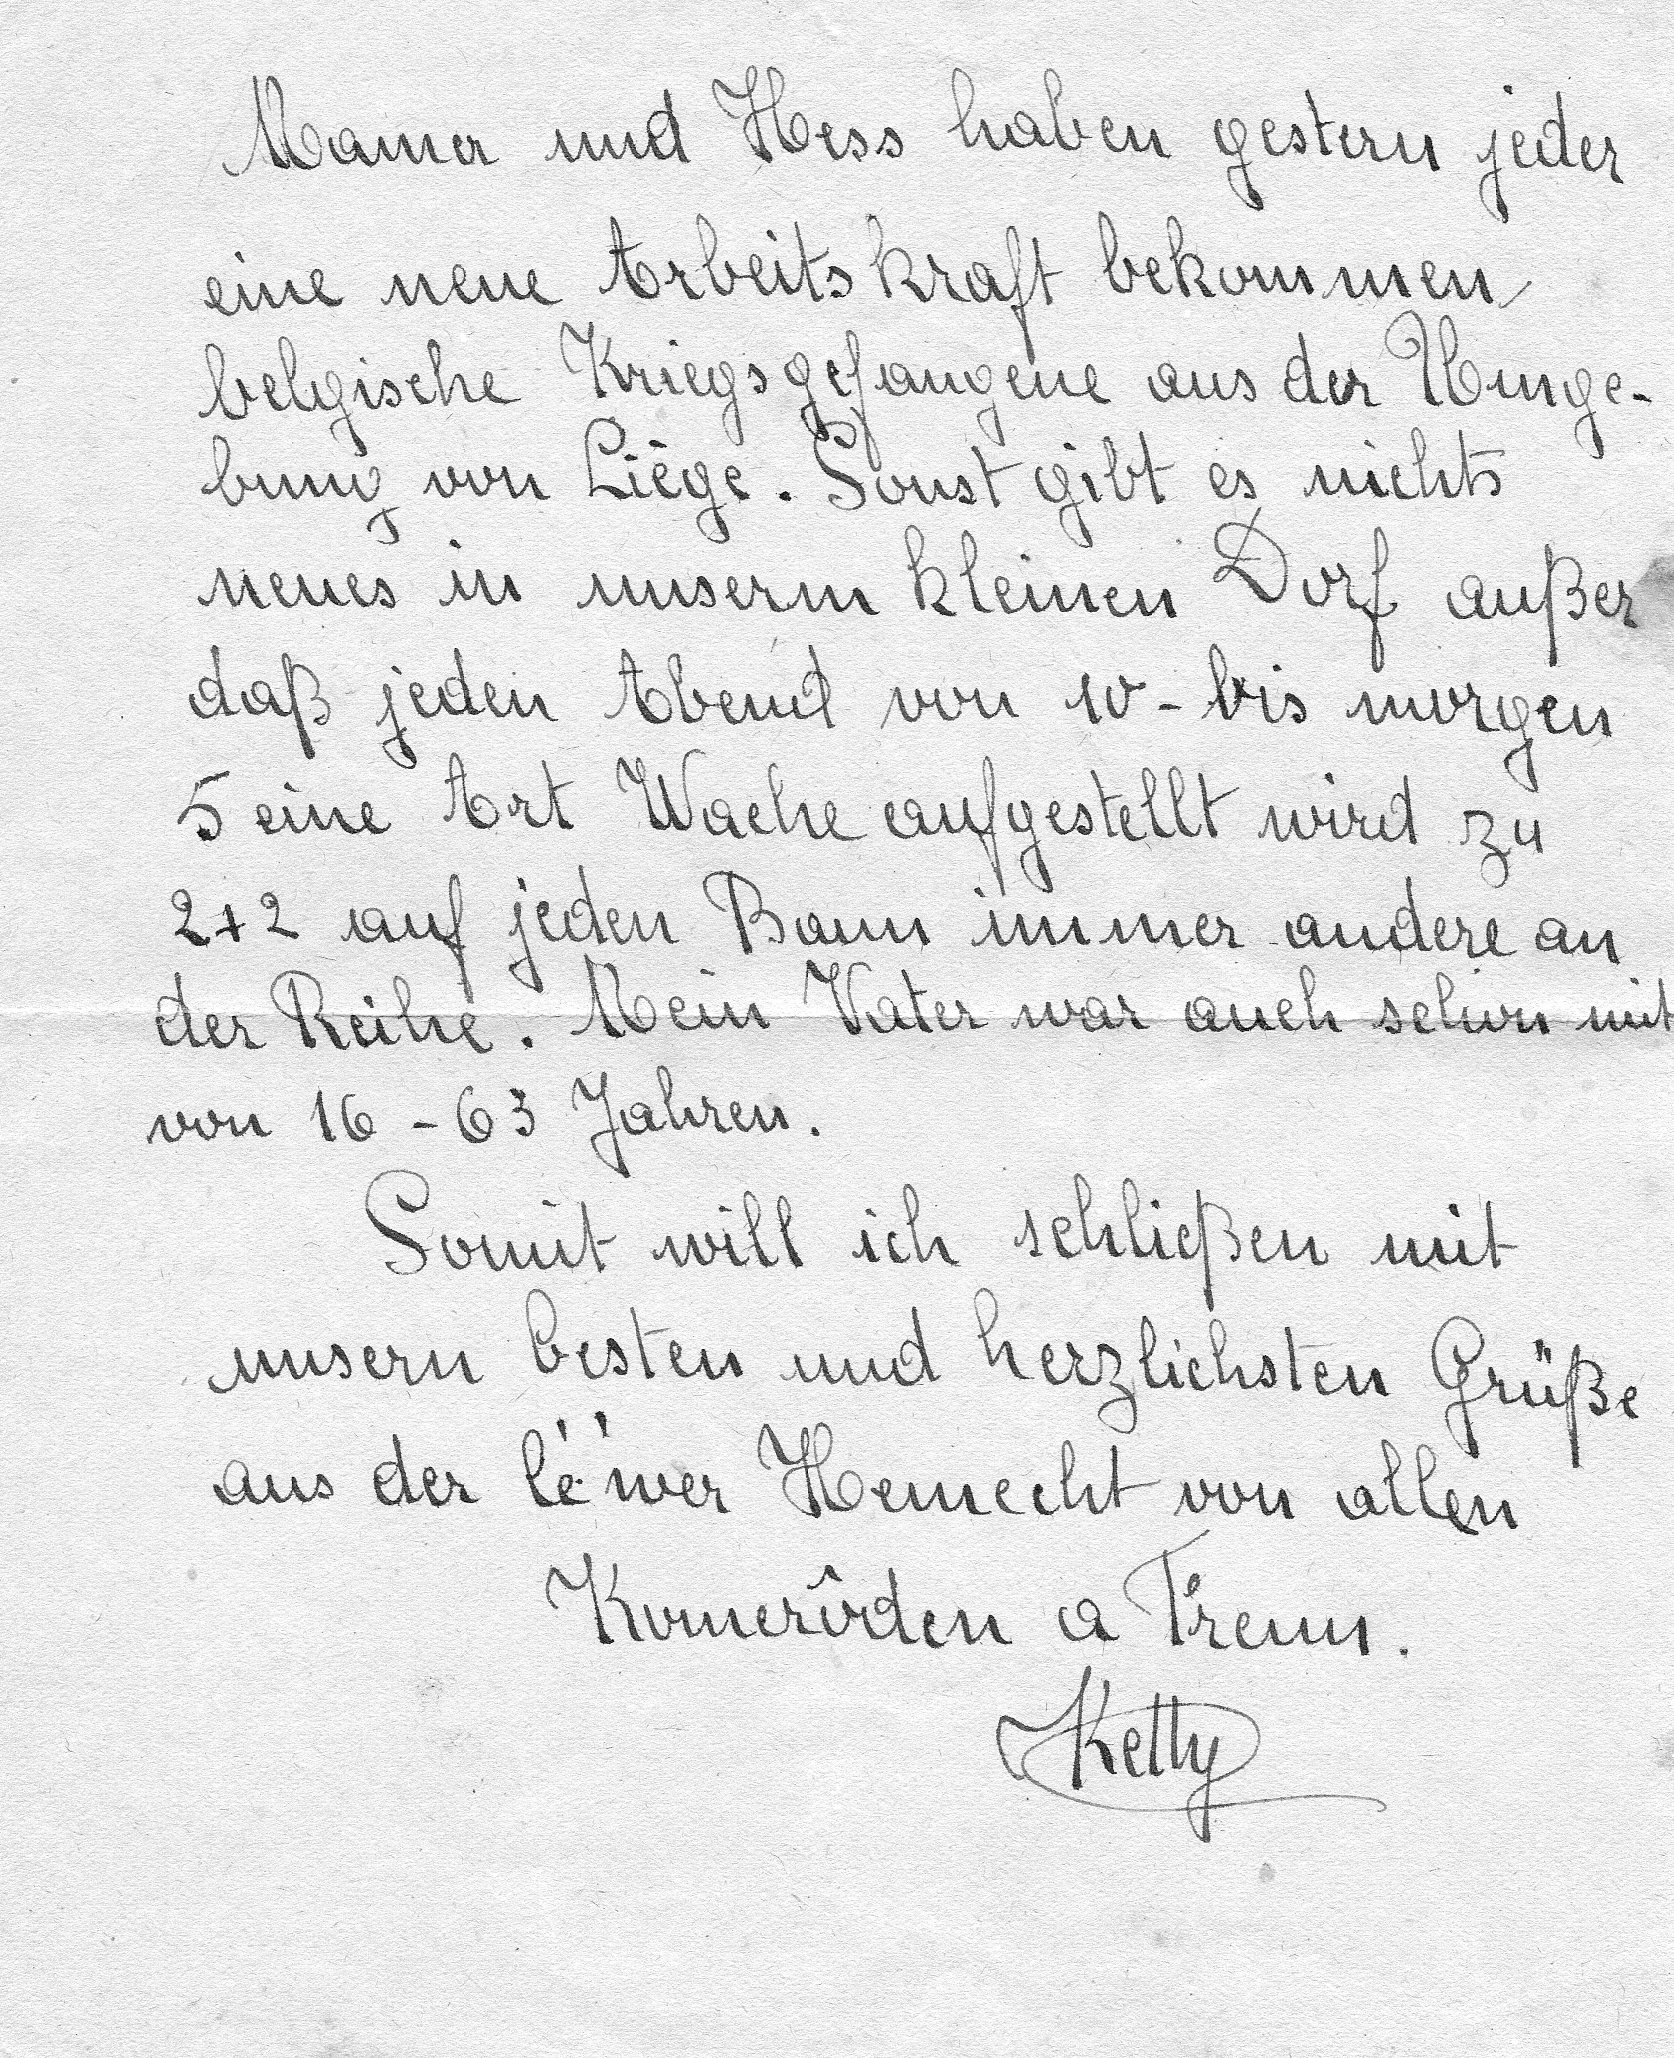 Mamer und Hess haben gestern jeder
eine neue Arbeitskraft bekommen,
belgische Kriegsgefangene aus der Umge-
bung von Liège. Sonst gibt es nichts
neues in unserm kleinen Dorf außer
daß jeden Abend von 10 - bis morgen
5 eine Art Wache aufgestellt wird zu
2+2 auf jeden Bann immer andere an
der Reihe. Mein Vater war auch schon mit
von 16 - 63 Jahren.
Somit will ich schließen mit
unsern besten und herzlichsten Grüße
aus der lé'wer Hemecht von allen
Komerôden a Frenn.
Ketty